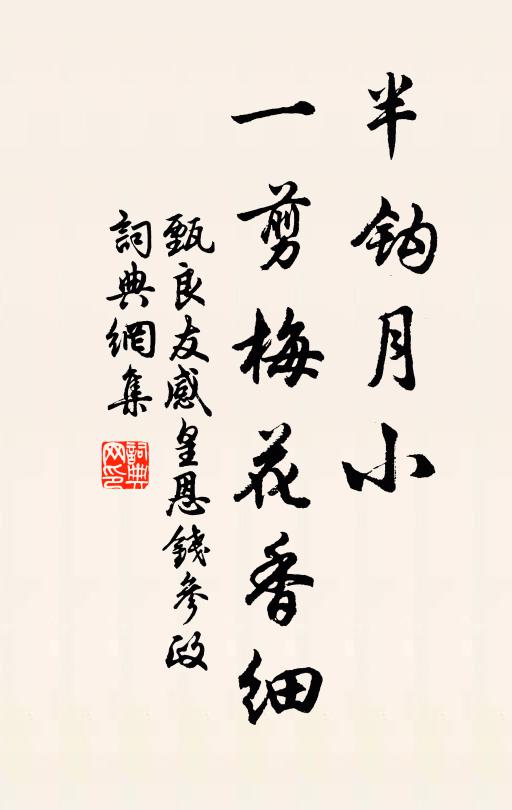 半鈎月小
一剪梅花香細
甄良友感皇恩錢參政
詞典網集
詞典
网印